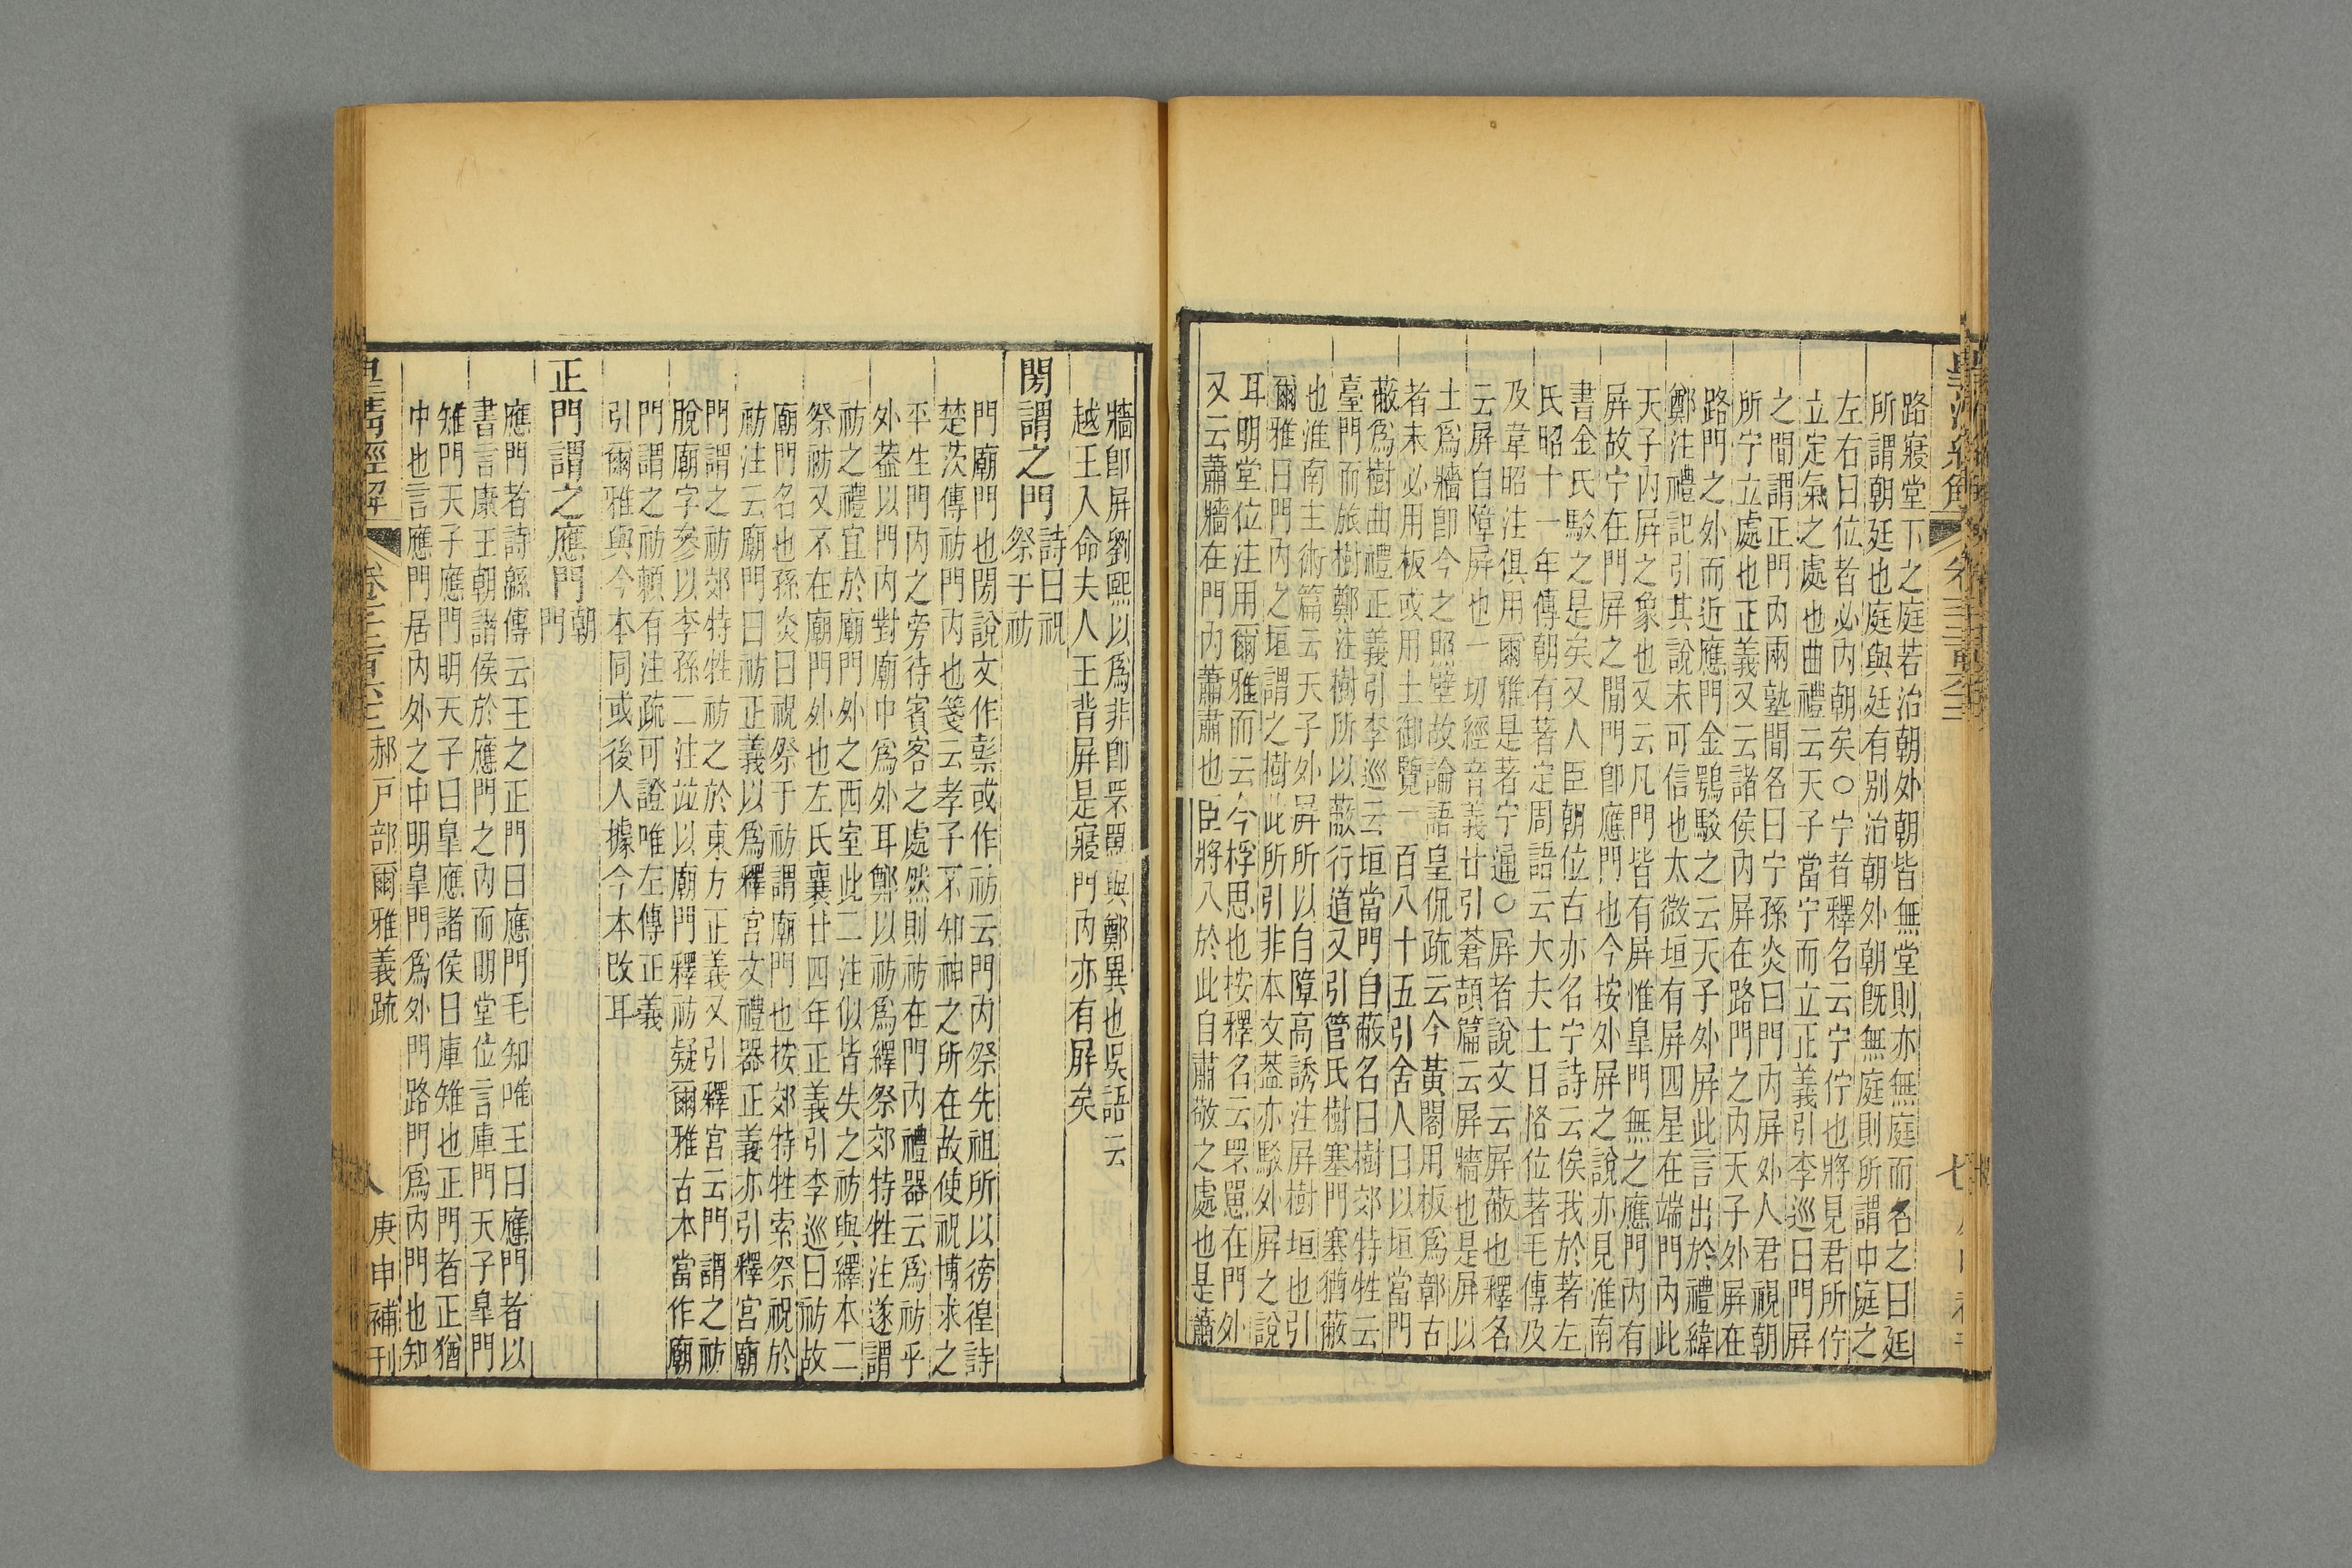 路寢堂下之庭若治朝外朝皆無堂則亦無庭而名之曰廷
所謂朝廷也庭與廷有别治朝外朝既無庭則所謂中庭之
左右曰位者必内朝矣○宁者釋名云宁佇也將見君所佇
立定氣之處也曲禮云天子當宁而立正義引李巡曰門屏
之間謂正門内兩塾間名曰宁孫炎曰門内屏外人君視朝
所宁立處也正義又云諸侯内屏在路門之内天子外屏在
路門之外而近應門金鶚駁之云天子外屏此言出於禮緯
鄭注禮記引其說未可信也太微垣有屏四星在端門内此
天子内屏之象也又云凡門皆有屏惟臯門無之應門内有
屏故宁在門屏之閒門卽應門也今按外屏之說亦見淮南
書金氏駁之是矣又人臣朝位古亦名宁詩云俟我於著左
氏昭十一年傳朝有著定周語云大夫士日恪位著毛傳及
及韋昭注俱用爾雅是著宁通○屏者說文云屏蔽也釋名
云屏自障屏也一切經音義廿引蒼頡篇云屏牆也是屏以
土爲牆卽今之照壁故論語皇侃疏云今黃閣用板爲鄣古
者未必用板或用土御覽一百八十五引舍人曰以垣當門
蔽爲樹曲禮正義引李巡云垣當門自蔽名曰樹郊特牲云
臺門而旅樹鄭注樹所以蔽行道又引管氏樹塞門塞猶蔽
也淮南主術篇云天子外屏所以自障高誘注屏樹垣也引
爾雅曰門内之垣謂之樹此所引非本文葢亦駁外屏之說
耳明堂位注用爾雅而云今桴思也按釋名云罘罳在門外
又云蕭牆在門内蕭肅也臣將入於此自肅敬之處也是蕭
牆卽屏劉熙以爲非卽罘罳與鄭異也吳語云
越王入命夫人王背屏是寢門内亦有屏矣
閍謂之門
詩曰祝
祭于祊
門廟門也閍說文作𥛱或作祊云門内祭先祖所以徬徨詩
楚茨傳祊門内也箋云孝子不知神之所在故使祝博求之
平生門内之旁待賓客之處然則祊在門内禮器云爲祊乎
外葢以門内對廟中爲外耳鄭以祊爲繹祭郊特牲注遂謂
祊之禮宜於廟門外之西室此二注似皆失之祊與繹本二
祭祊又不在廟門外也左氏襄廿四年正義引李巡曰祊故
廟門名也孫炎曰祝祭于祊謂廟門也按郊特牲索祭祝於
祊注云廟門曰祊正義以爲釋宮文禮器正義亦引釋宮廟
門謂之祊郊特牲祊之於東方正義又引釋宮云門謂之祊
脫廟字參以李孫二注並以廟門釋祊疑爾雅古本當作廟
門謂之祊賴有注疏可證唯左傳正義
引爾雅與今本同或後人據今本改耳
正門謂之應門
朝
門
應門者詩緜傳云王之正門曰應門毛知唯王曰應門者以
書言康王朝諸侯於應門之内而明堂位言庫門天子臯門
雉門天子應門明天子曰臯應諸侯曰庫雉也正門者正猶
中也言應門居内外之中明臯門爲外門路門爲内門也知
皇淸經解
卷千二百六十三 郝戶部爾雅義疏
八 庚申補刊